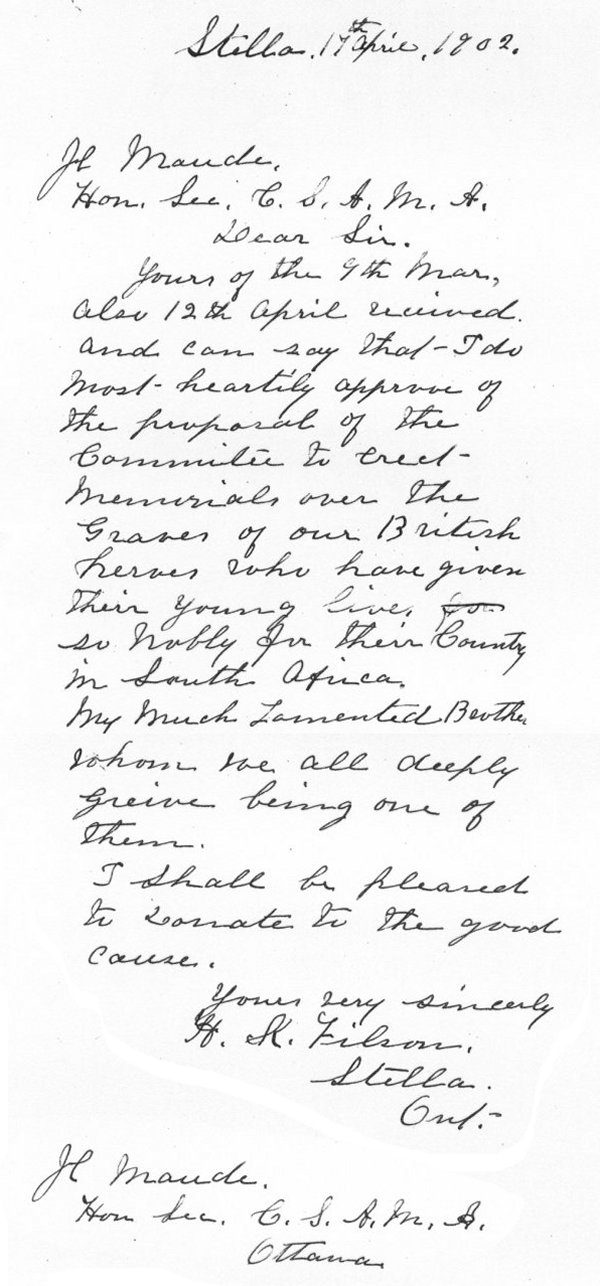 Stella. 17th April, 1902.
H Maude.
Hon. Sec. C. S. A. M. A.
Dear Sir.
Yours of the 9th Mar,
also 12th April received.
and can say that I do
Most heartily approve of
the proposal of the
Committee to erect
Memorials over the
Graves of our British
heroes who have given
their young lives for
so Nobly for their Country
in South Africa.
My Much Lamented Brother
whom we all deeply
Greive being one of
them.
I shall be pleased
to donate to the good
cause.
Yours very sincerly
H. K. Filson.
Stella.
Ont.
H Maude.
Hon Sec. C. S. A. M. A.
Ottawa